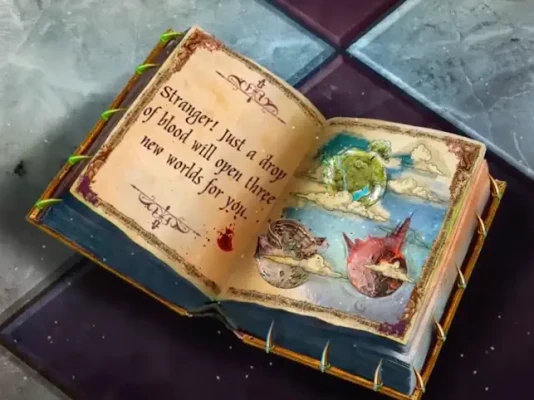 Stranger! Just a drop
of blood will open three
new worlds for you.